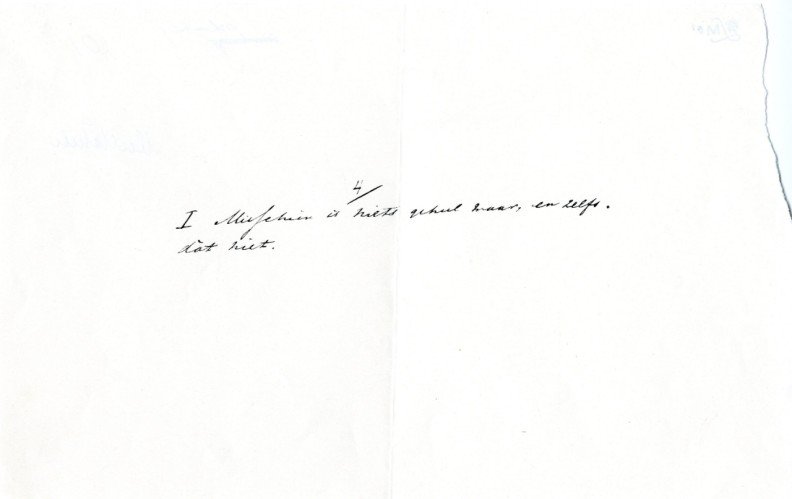 4/
I Misschien is niets geheel waar, en zelfs.
dàt niet.